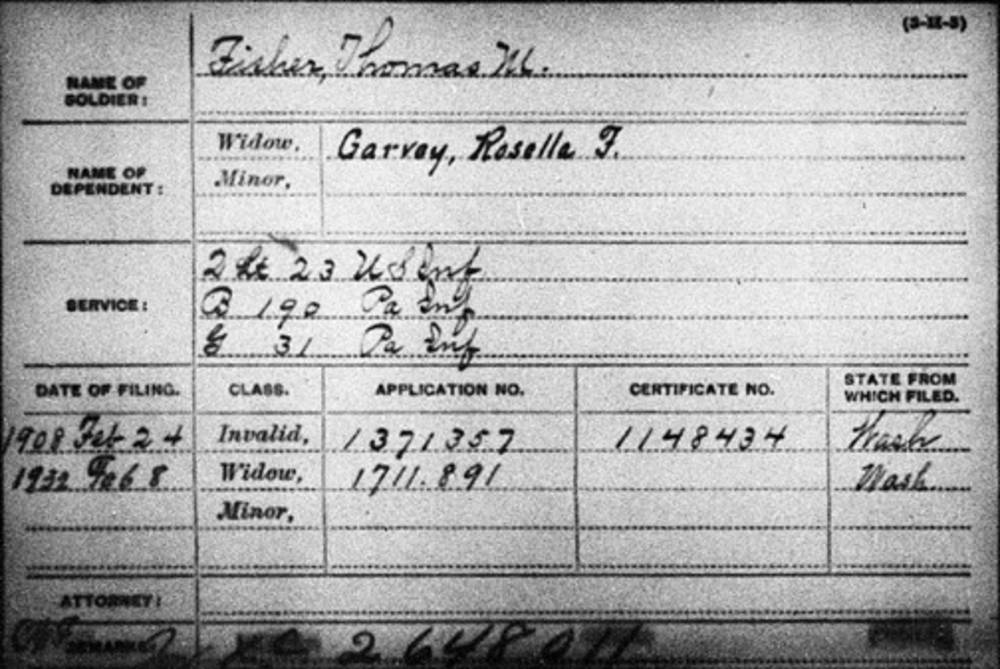 (3-H-3)
NAME OF SOLDIER: Fisher, Thomas M.
NAME OF DEPENDENT: Widow, Garvey, Rosella F.
Minor,
SERVICE: 2 Lt 23 U S Inf
B 190 Pa Inf
G 31 Pa Inf
DATE OF FILING. CLASS. APPLICATION NO. CERTIFICATE NO. STATE FROM WHICH FILED.
1908 Feb 24 Invalid, 1371357 1148434 Wash
1932 Feb 8 Widow, 1711.891 Wash
Minor,
ATTORNEY:
REMARKS: XC 2648011